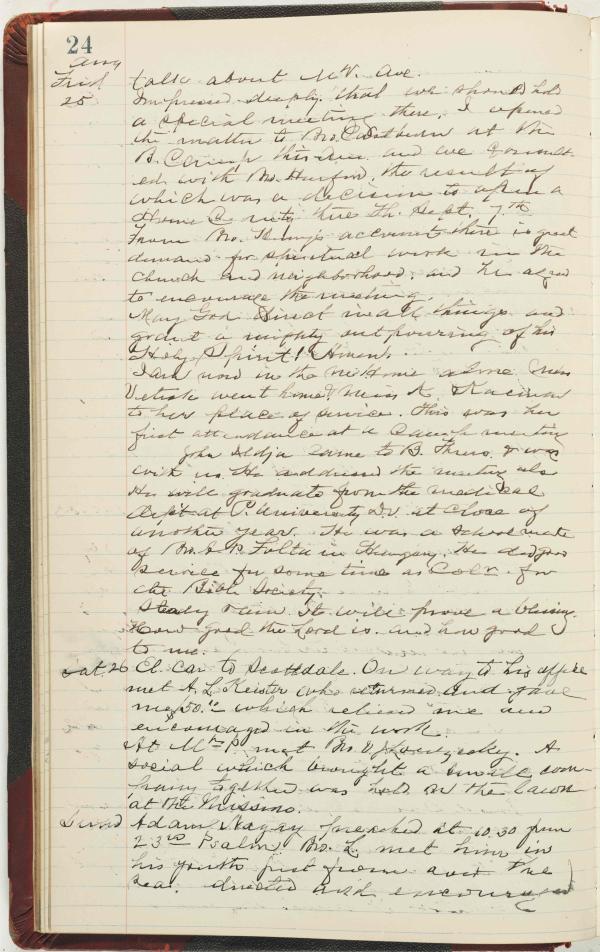 24
Aug
Frid talk about Mt. V. Ave.
25 Impressed deeply that we should hold
a special meeting there. I opened
the matter to Bro. at the
B. Camp this eve. and we consult
ed with Bro. the result of
which was a decision to open a
Home C. with three Th. Sept. 7th
From Bro. King's account there is great
demand for spiritual work in the
church and neighborhood; and he agreed
to encourage the meeting.
May God direct in all things and
grant a mighty outpouring of his
Holy Spirit! Amen.
I am now in the M. Home alone. Miss
went home & Miss A.
to her place of service. This was her
first attendance at a Camp meeting
John came to B. Thurs. & was
with us. He addressed the meeting also
He will graduate from the medical
dept at P. University D.V. at close of
another year. He was a schoolmate
of Bro. in Hungary. He did good
service for some time as Col'r. for
the Bible Society.
Steady rain. It will prove a blessing.
How good the Lord is and how good
to me.
Sat. 26 El. Car to Scottdale. On way to his office
met A. L. Keister who returned and gave
me $50.00 which relieved me and
encouraged in the work.
At Mt. P. met Bro. A
social which brought a small com-
pany together was held on the lawn
at the Missions.
Sund Adam Nagay preached at 10.30 from
23rd Psalm. Bro. L. met him in
his youth just from over the
sea: directed and encouraged